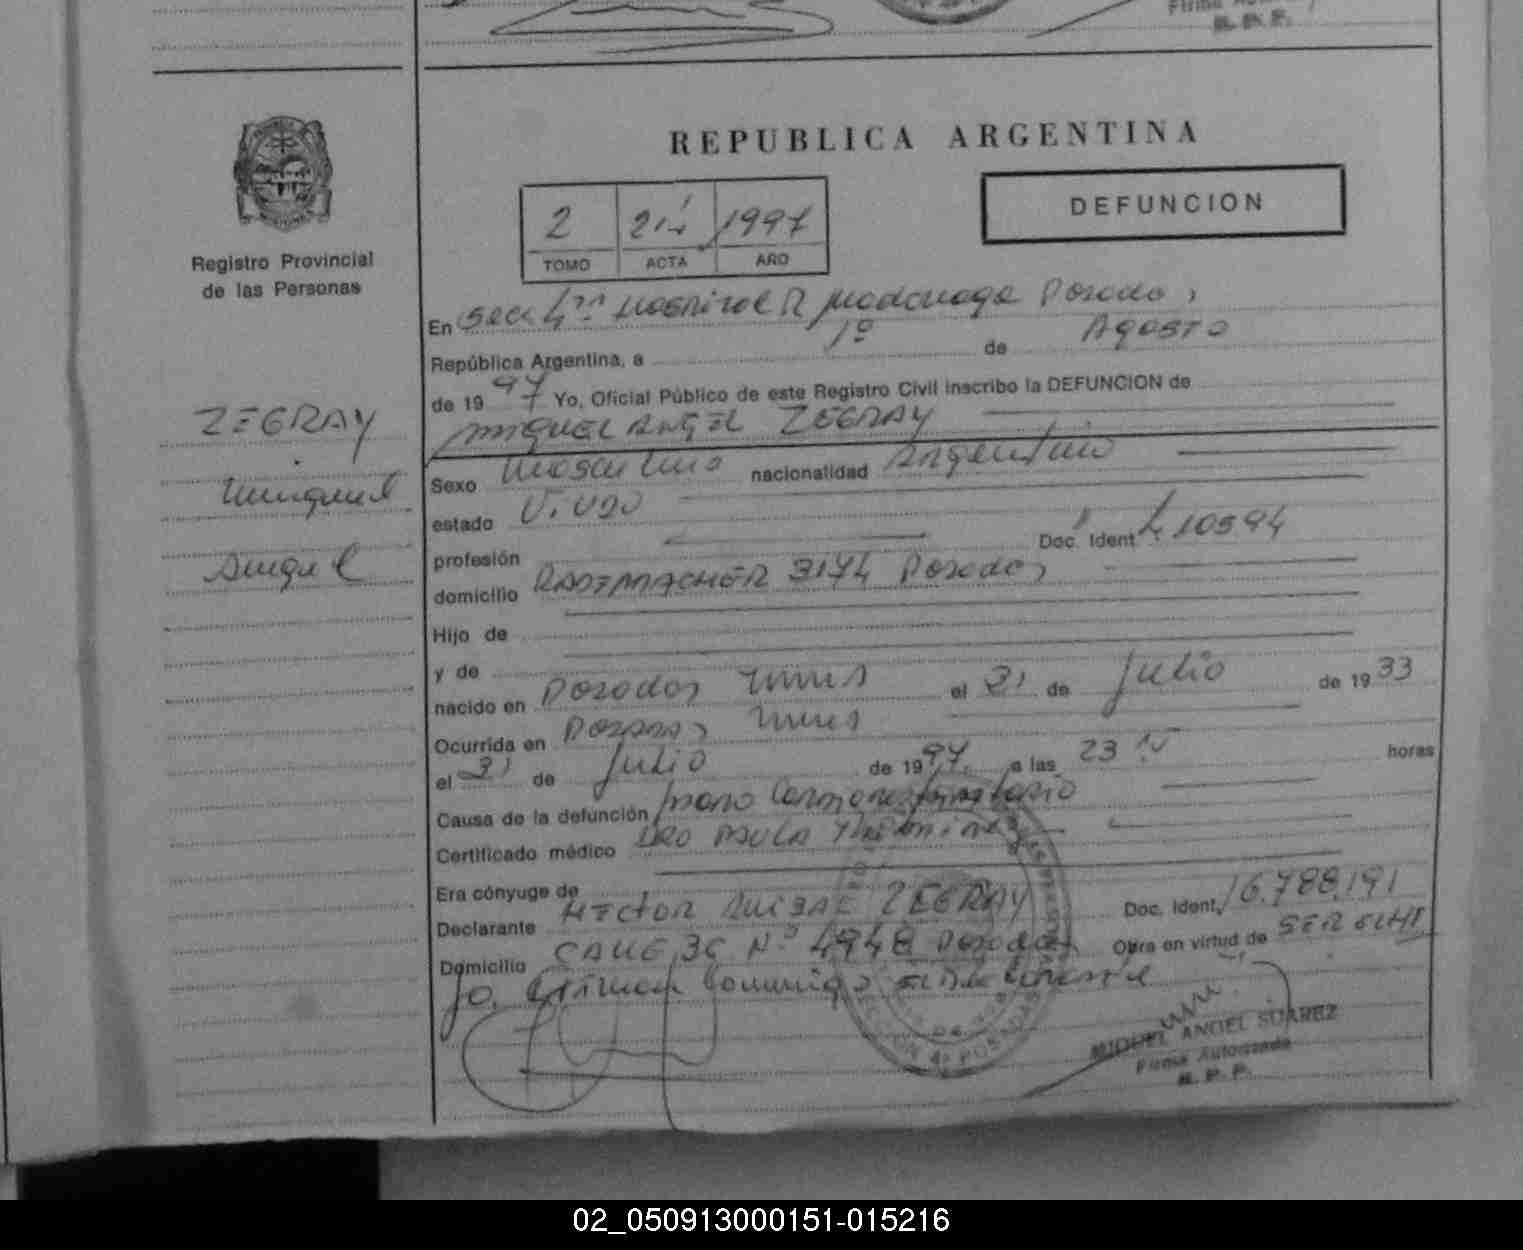 Firma
R. P. P.
REPUBLICA ARGENTINA
2 214 1997
TOMO ACTA AÑO
DEFUNCION
Registro Provincial
de las Personas
En Secc 4ta Hospital R Madariaga Posadas,
República Argentina, a 1º de Agosto
de 1997 Yo, Oficial Público de este Registro Civil inscribo la DEFUNCION de
MIGUEL ANGEL ZEGRAY
ZEGRAY
Miguel
Angel
Sexo Masculino nacionalidad Argentino
estado Viudo
profesión Doc. Ident.
domicilio RADEMACHER 3174 Posadas
Hijo de
y de
nacido en Posadas Mnes el 31 de Julio de 1933
Ocurrida en Posadas Mnes
el 31 de Julio de 1997 a las 23 horas
Causa de la defunción paro
Certificado médico PAULA
Era cónyuge de
Declarante HECTOR ANIBAL ZEGRAY Doc. Ident. 16.788.191
Domicilio CALLE 36 Nº 4948 Posadas Obra en virtud de SER
Firman conmigo el declarante
4ª POSADAS
MIGUEL ANGEL SUAREZ
Firma Autorizada
R. P. P.
02_050913000151-015216